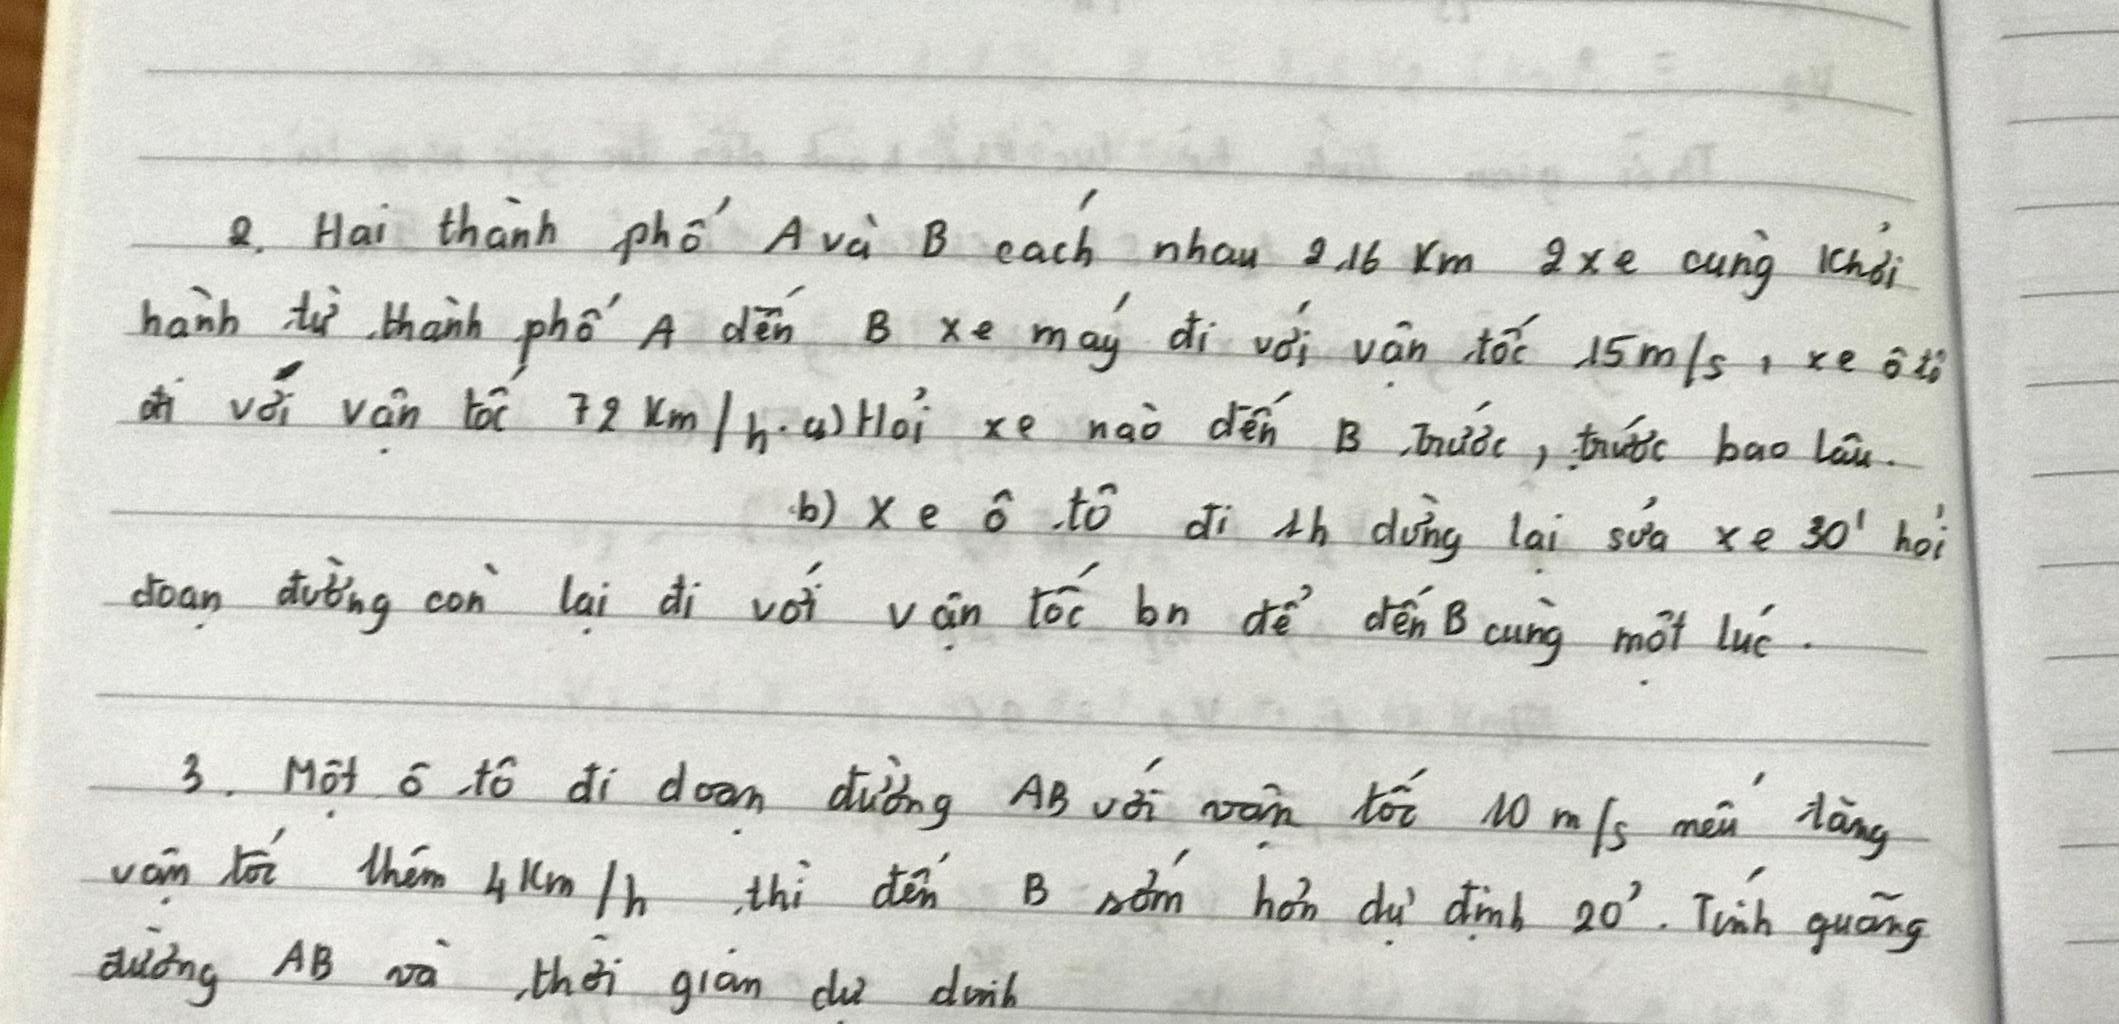 2. Hai thành phố A và B cách nhau 216 Km 2 xe cùng khởi
hành từ thành phố A đến B xe máy đi với vận tốc 15m/s, xe ô tô
đi với vận tốc 72 Km/h. a) Hỏi xe nào đến B trước, trước bao lâu.
b) Xe ô tô đi 1h dừng lại sửa xe 30' hỏi
đoạn đường còn lại đi với vận tốc bn để đến B cùng một lúc.
3. Một ô tô đi đoạn đường AB với vận tốc 10 m/s nếu tăng
vận tốc thêm 4Km/h thì đến B sớm hơn dự định 20'. Tính quãng
đường AB và thời gian dự định